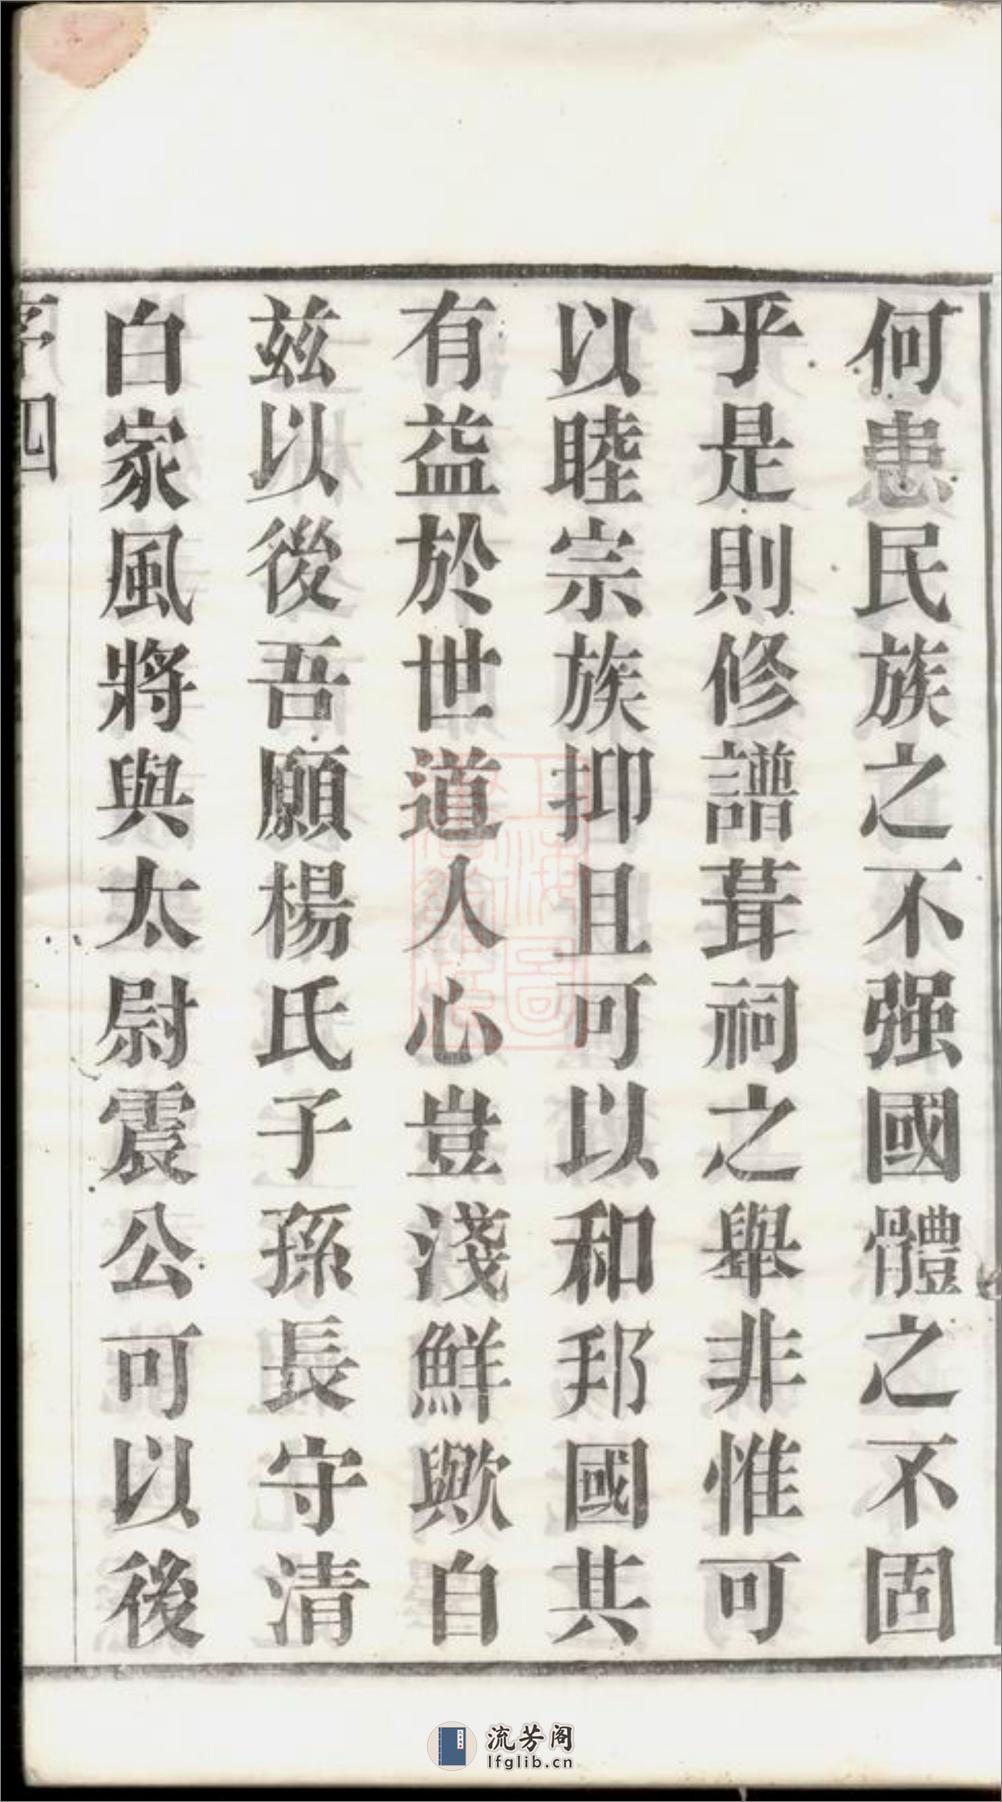 何患民族之不强國體之不固
乎是則修譜葺祠之舉非惟可
以睦宗族抑且可以和邦國共
有益於世道人心豈淺鮮歟自
兹以後吾願楊氏子孫長守清
白家風將與太尉震公可以後
序四
流芳阁
lfglib.cn